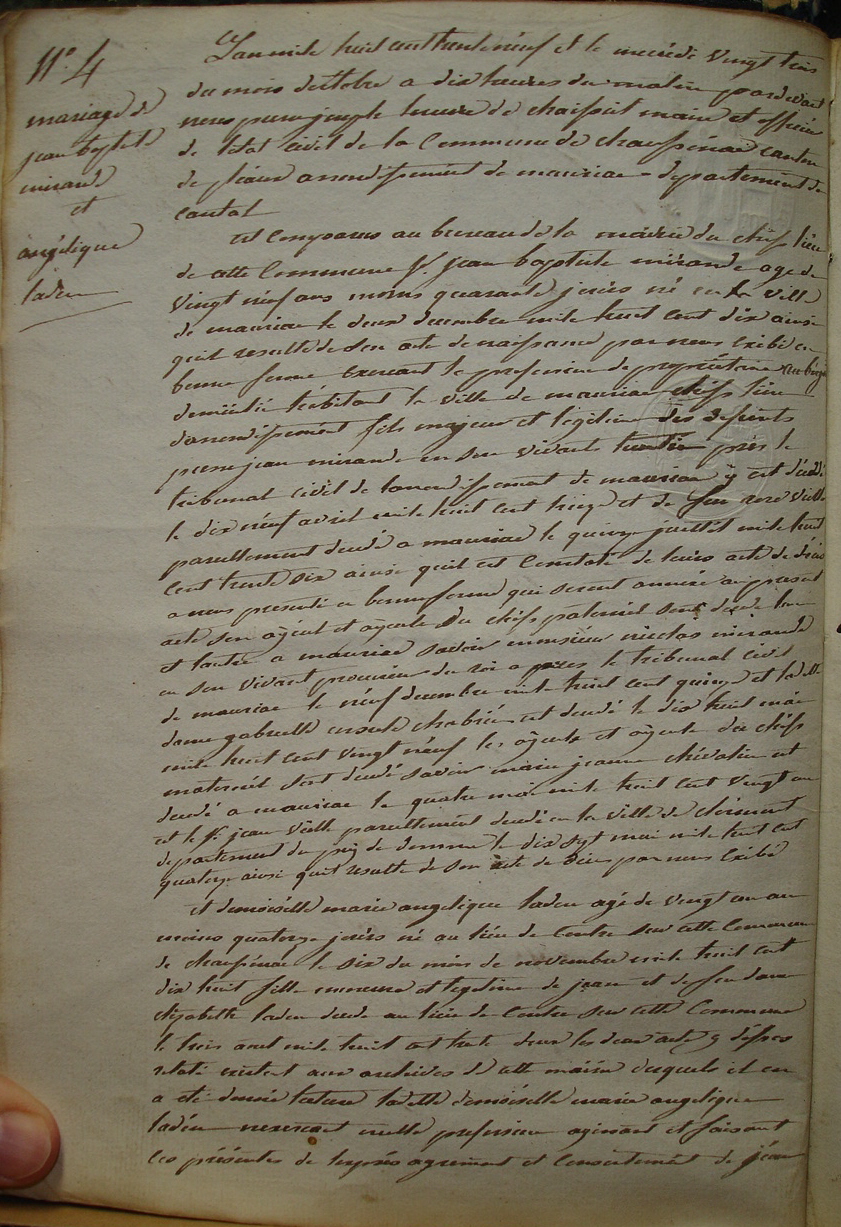 N° 4
mariage de
jean baptiste
mirande
et
angélique
ladeu
L'an mile huit cent trente neuf et le mercredi vingt trois
du mois doctobre a dix heures du matin pardevant
nous pierre joseph maire et officier
de letat civil de la Commune de chaussenac canton
de pleaux arrondissement de mauriac departement du
cantal
est comparus au bureau de la mairie du chef lieu
de cette Commune Sr. jean baptiste mirande age de
vingt neuf ans moins quarante jours né en la ville
de mauriac le deux decembre mile huit cent dix ainsi
quil resulte de son acte de naissance par nous exibé en
bonne forme exercant la profession de propriétaire
domicilié habitant la ville de mauriac chef lieu
darrondissement fils majeur et legitime des defunts
pierre jean mirande en son vivant près le
tribunal civil de larrondissement de mauriac y est décédé
le dix neuf avril mile huit cent treize et de feu rose vialle
pareillement décédé a mauriac le quinze juillet mile huit
cent trente six ainsi quil est Constaté de leurs acte de décès
a nous presenté en bonne forme qui seront annexé au present
acte son ayeul et ayeule du chef paternel sont décédé lun
et lautre a mauriac savoir monsieur nicolas mirande
en son vivant procureur du roi près le tribunal civil
de mauriac le neuf decembre mile huit cent quinze et la dite
dame gabrielle ursule chabrié est décédé le dix huit mai
mile huit cent vingt neuf les ayeuls et ayeule du chef
maternel sont décédé savoir marie jeanne chevalier est
décédé a mauriac le quatre mai mile huit cent vingt un
et le Sr. jean vialle pareillement décédé en la ville de clermont
departement du puy de domme le dix sept mai mile huit cent
quatorze ainsi quil resulte de son acte de décès par nous Exibé
et demoiselle marie angelique ladeu agé de vingt un an
moins quatorze jours né au lieu de Contre sur cette Commune
de chaussenac le six du mois de novembre mile huit cent
dix huit fille mineure et legitime de jean et de feu dame
elizabeth ladeu décédé au lieu de Contre sur cette Commune
le trois aout mile huit cent trente deux les deux acte y dessus
relaté aux archives de cette mairie desquels il en
a été donné lecture ladite demoiselle marie angelique
ladeu nexercant nulle profession agissant et faisant
les présentes de lexprès agrement et Consentement de jean